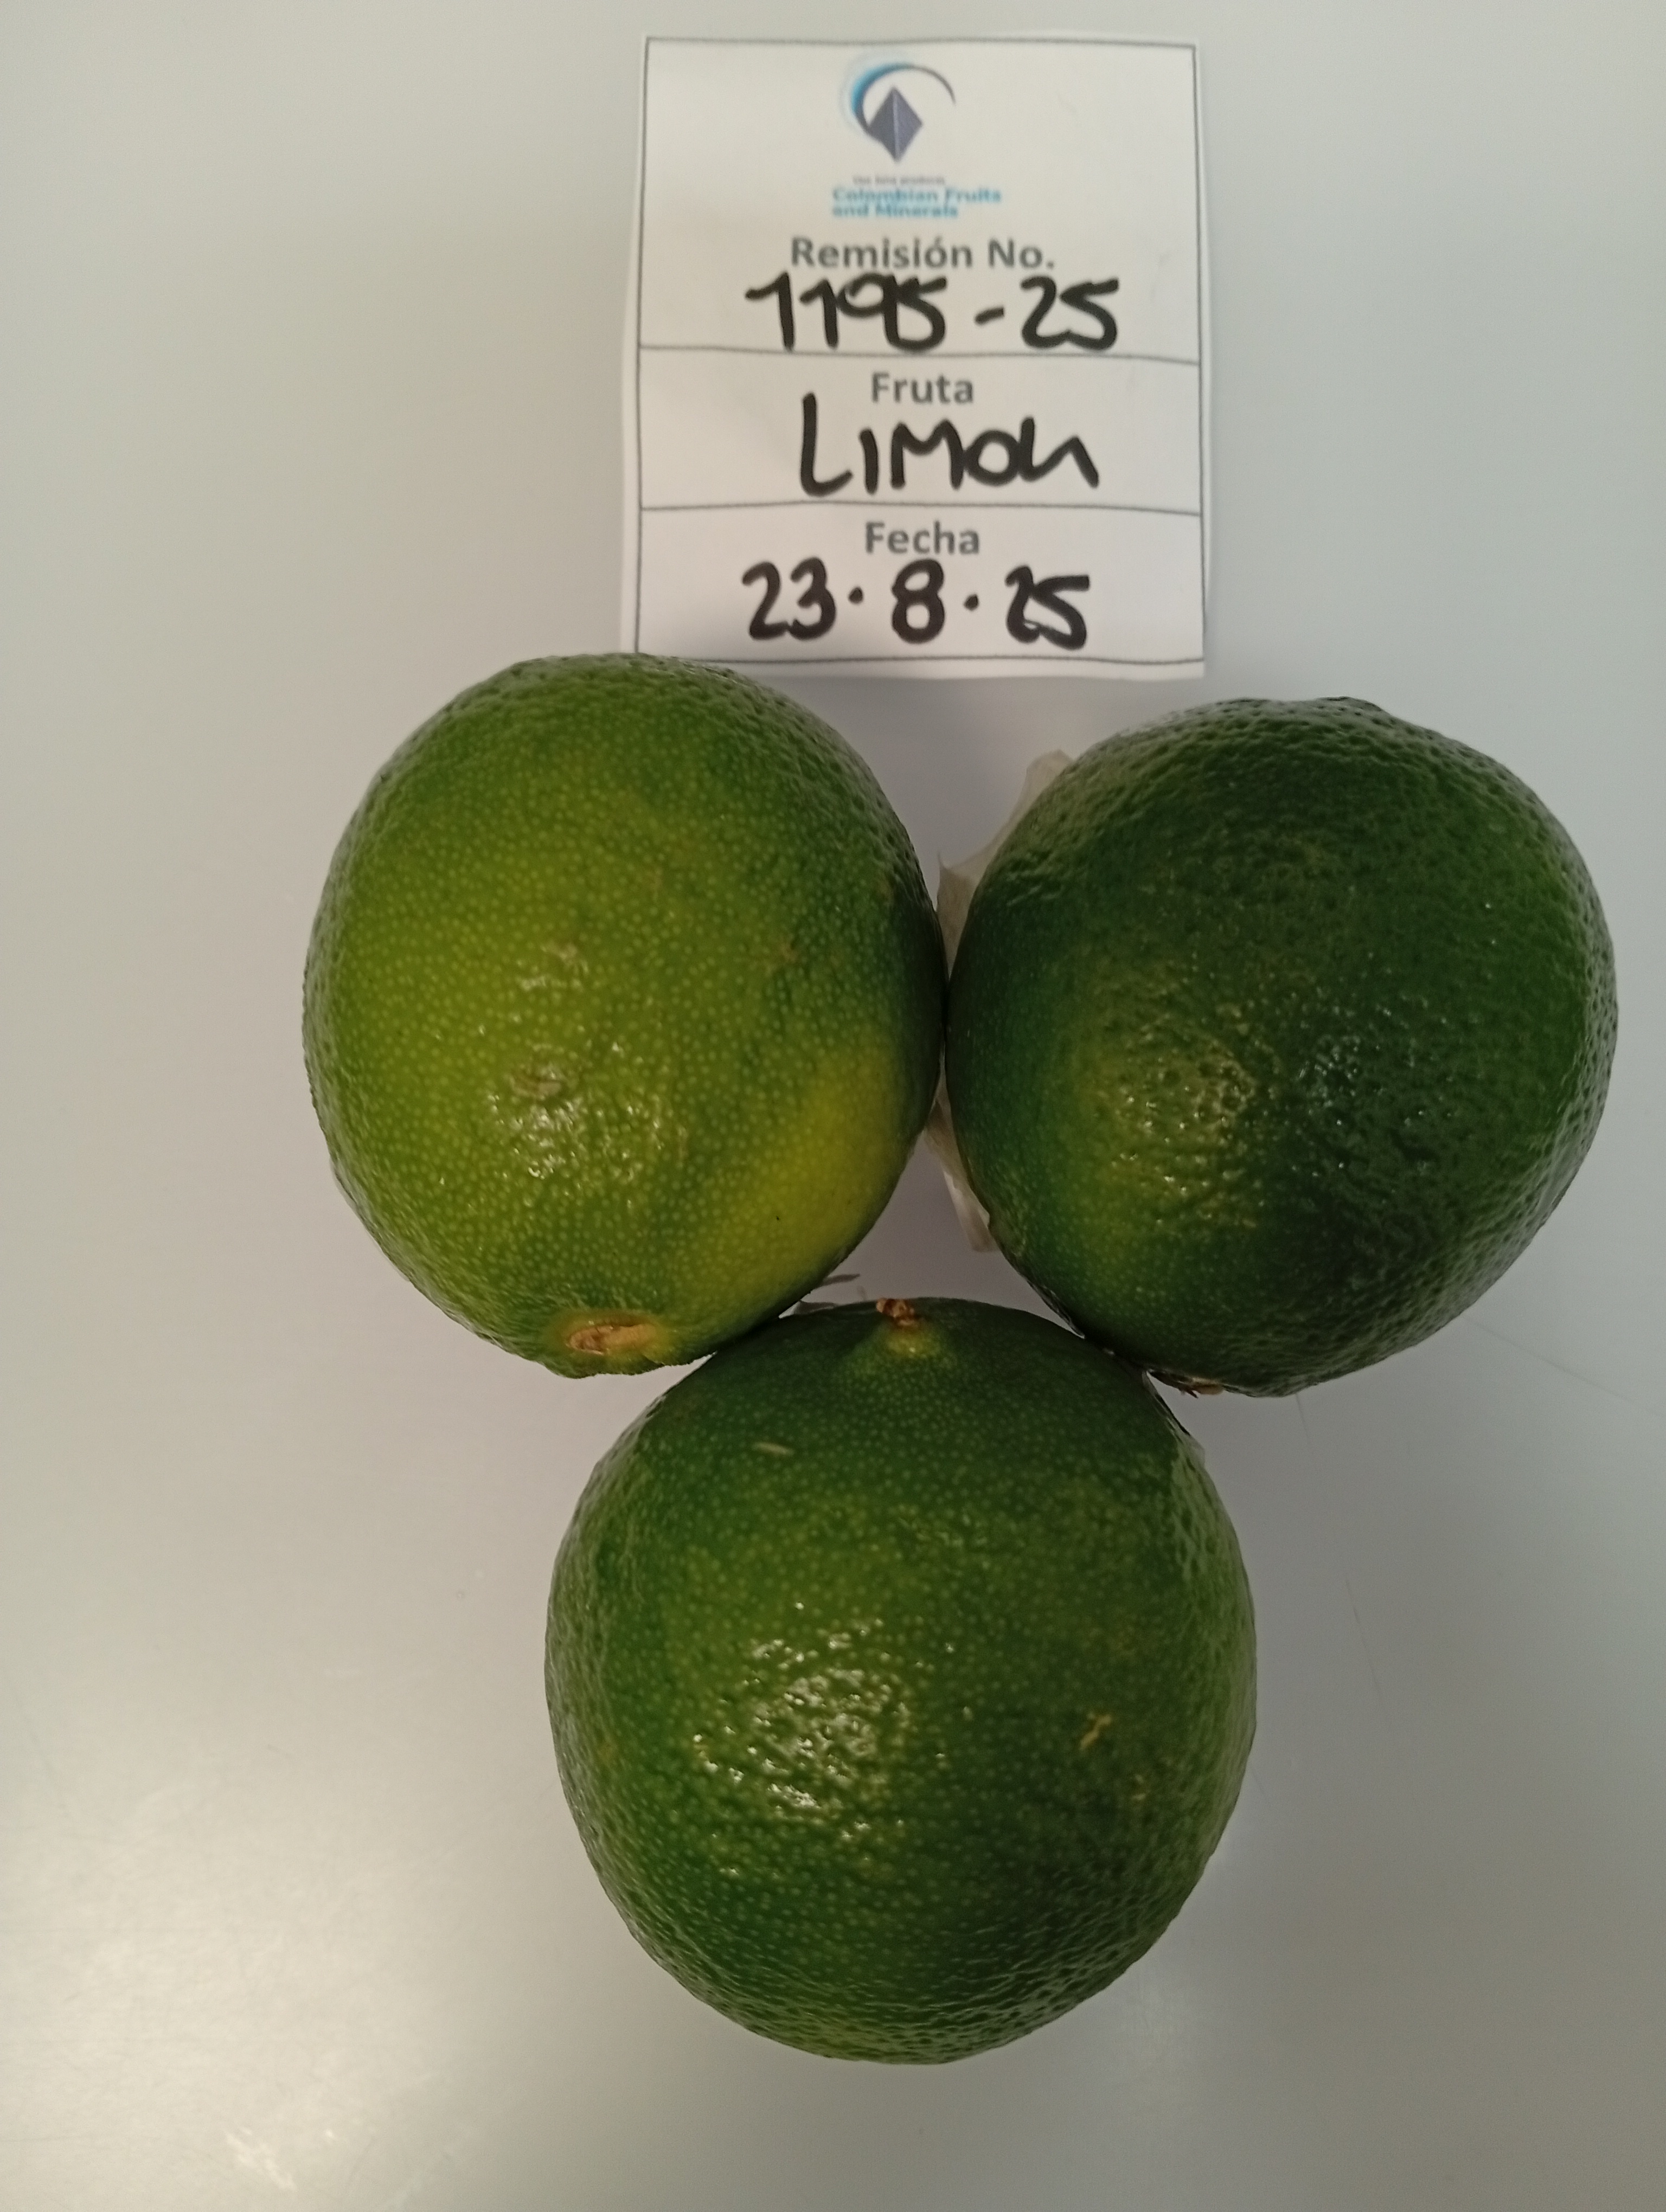 Colombian Fruits
and Minerals
Remisión No.
1195-25
Fruta
LIMON
Fecha
23.8.25